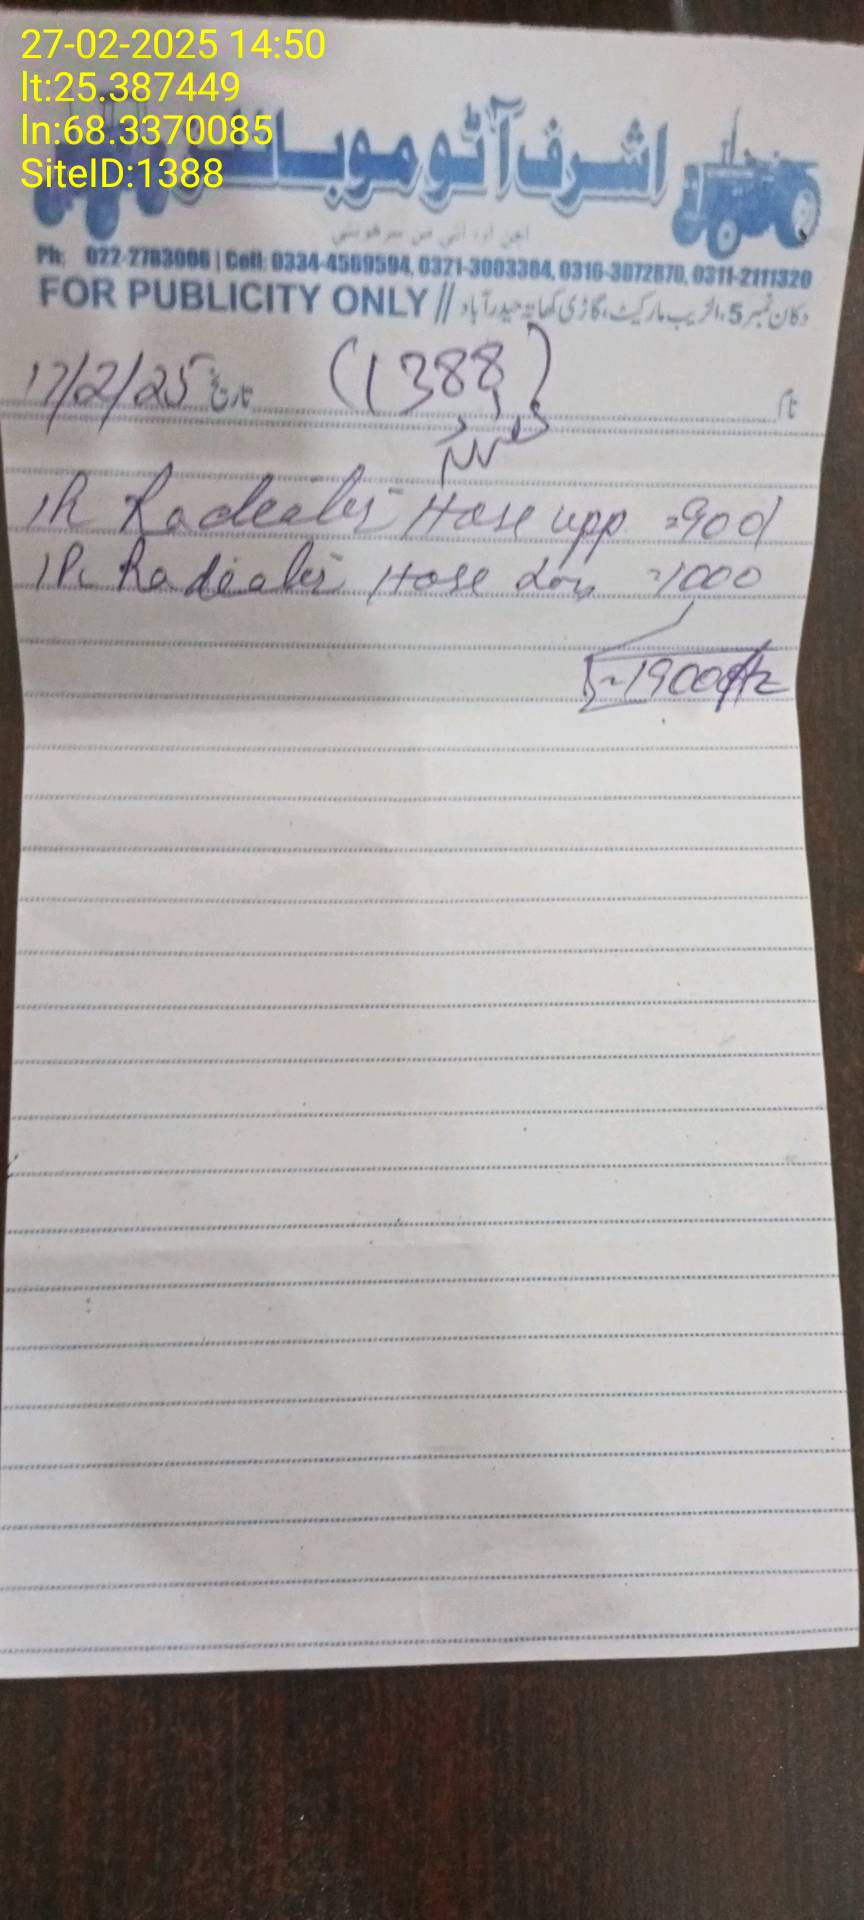 27-02-2025 14:50
lt:25.387449
ln:68.3370085
SiteID:1388
اشرف آٹو موبائلز
Ph: 022-2783006 | Cell: 0334-4569594, 0321-3003384, 0316-3072870, 0311-2111320
FOR PUBLICITY ONLY // دکان نمبر 5، الزیب مارکیٹ، گاڑی کھاتہ حیدرآباد
17/2/25 تاریخ (1388)
1P Radeater Hose upp =900/
1P Radeater Hose =1000
1900